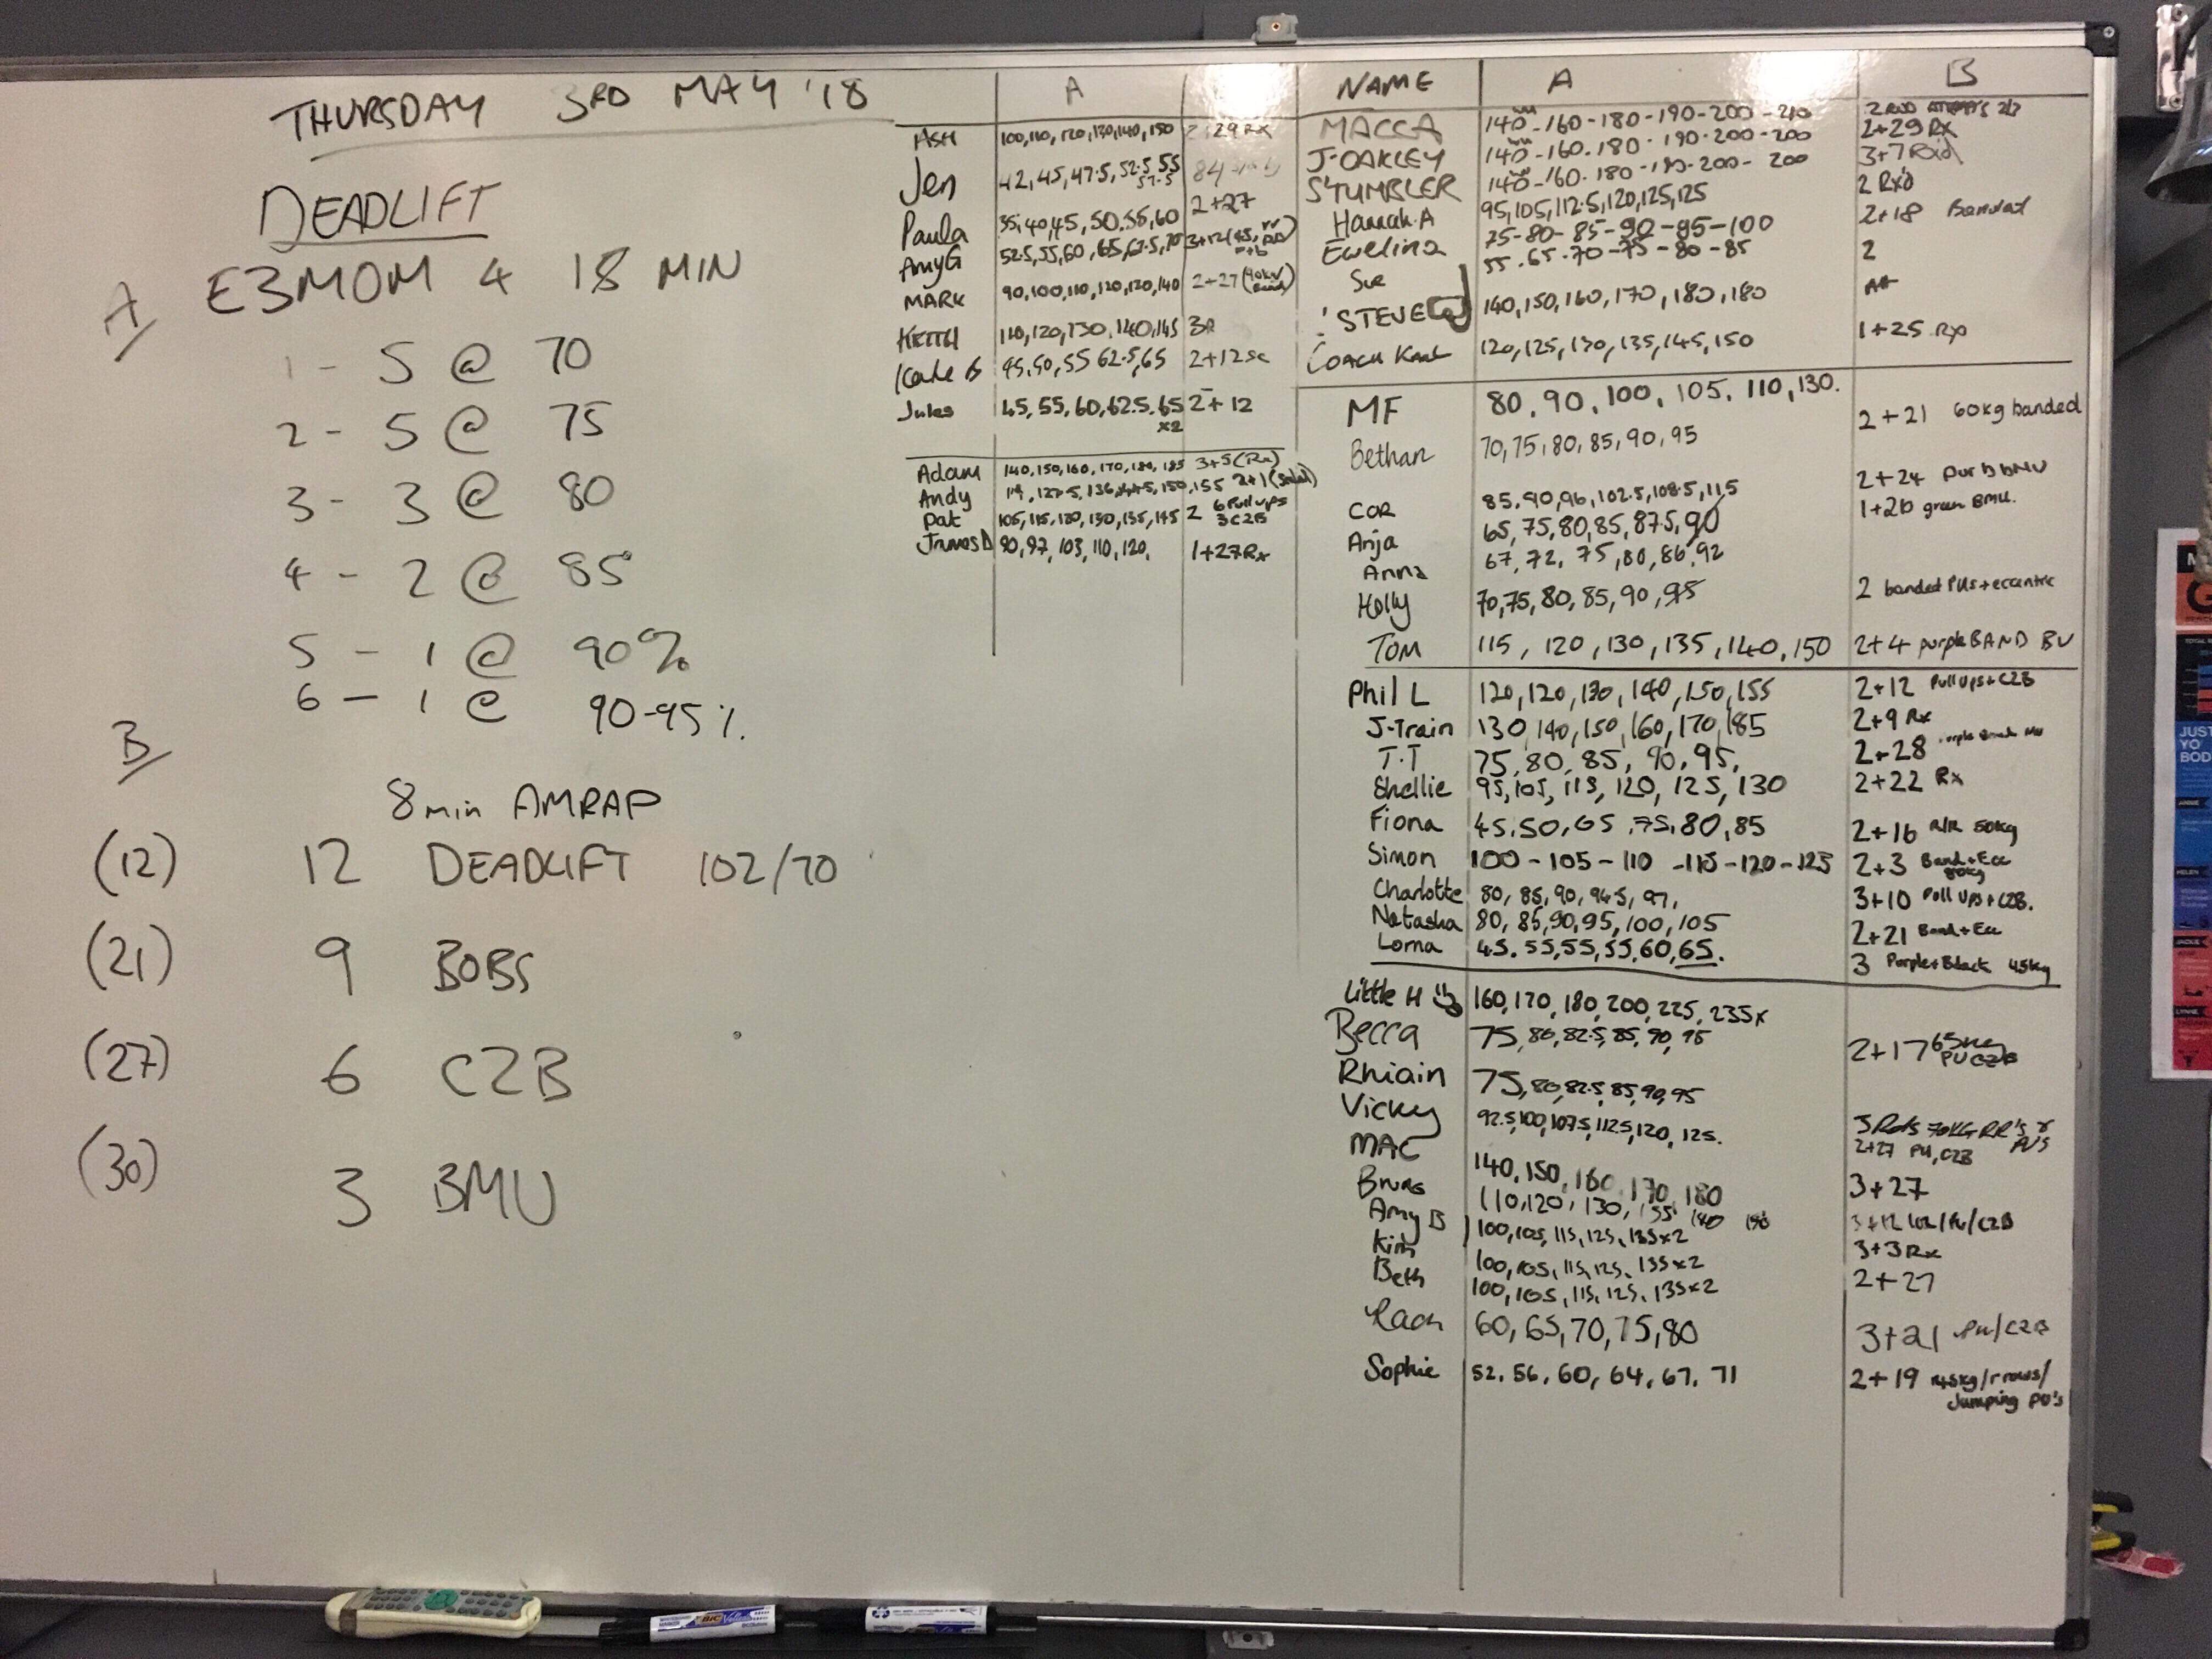 THURSDAY 3RD MAY '18
DEADLIFT
A/ E3MOM 4 18 MIN
1 - 5 @ 70
2 - 5 @ 75
3 - 3 @ 80
4 - 2 @ 85
5 - 1 @ 90%
6 - 1 @ 90-95%
B/
8 min AMRAP
(12) 12 DEADLIFT 102/70
(21) 9 BOBS
(27) 6 C2B
(30) 3 BMU
A
ASH 100, 110, 120, 130, 140, 150 29 Rx
Jen 42, 45, 47.5, 52.5, 55
57.5
Paula 35, 40, 45, 50, 55, 60 2+27
Amy G 52.5, 55, 60, 65, 67.5, 70
MARK 90, 100, 110, 120, 130, 140 2+27
KEITH 110, 120, 130, 140, 145 3R
Kate B 45, 50, 55 62.5, 65 2+12sc
Jules 45, 55, 60, 62.5, 65 2+12
x2
Adam 140, 150, 160, 170, 180, 185 3+5 (Rx)
Andy 150, 155 2+1
Pat 105, 115, 120, 130, 135, 145 2 6 Pull ups
3 C2B
James D 90, 97, 103, 110, 120, 1+27 Rx
NAME A B
MACCA 140-160-180-190-200-210
J-OAKLEY 140-160-180-190-200-200 2+29 Rx
STUMBLER 140-160-180-190-200-200 3+7
Hannah.A 95, 105, 112.5, 120, 125, 125 2 Rx'd
Ewelina 75-80-85-90-95-100 2+18
Sue 55-65-70-75-80-85 2
'STEVE 140, 150, 160, 170, 180, 180
COACH Karl 120, 125, 130, 135, 145, 150 1+25 Rx
MF 80, 90, 100, 105, 110, 130. 2+21 60kg banded
Bethan 70, 75, 80, 85, 90, 95
COR 85, 90, 96, 102.5, 108.5, 115 2+24
Anja 65, 75, 80, 85, 87.5, 90 1+26 green BMU.
Anna 67, 72, 75, 80, 86, 92
Holly 70, 75, 80, 85, 90, 95 2 banded PUs + eccentric
TOM 115, 120, 130, 135, 140, 150 2+4 purple BAND
Phil L 120, 120, 130, 140, 150, 155 2+12 Pull ups + C2B
J-Train 130, 140, 150, 160, 170, 185 2+9 Rx
T.T 75, 80, 85, 90, 95, 2+28
Shellie 95, 105, 115, 120, 125, 130 2+22 Rx
Fiona 45, 50, 65, 75, 80, 85 2+16 R/R 50kg
Simon 100-105-110-115-120-125 2+3 Band + Ecc
80kg
Charlotte 80, 85, 90, 94.5, 97, 3+10 Pull ups + C2B.
Natasha 80, 85, 90, 95, 100, 105 2+21 Band + Ecc
Lorna 45, 55, 55, 55, 60, 65. 3 Purple + Black 45kg
Little H 160, 170, 180, 200, 225, 235x
Becca 75, 80, 82.5, 85, 90, 95 2+17 65kg
PU C2B
Rhiain 75, 80, 82.5, 85, 90, 95
Vicky 92.5, 100, 107.5, 112.5, 120, 125. 3 Rds 70KG RR's
MAC 140, 150, 160, 170, 180 2+27 PU, C2B
110, 120, 130, 3+27
Amy B 100, 105, 115, 125, 135x2
Kim 100, 105, 115, 125, 135x2 3+3 Rx
Beth 100, 105, 115, 125, 135x2 2+27
Rach 60, 65, 70, 75, 80 3+21 PU/C2B
Sophie 52, 56, 60, 64, 67, 71 2+19 45kg/r rows/
Jumping PU's
BIC Velleda